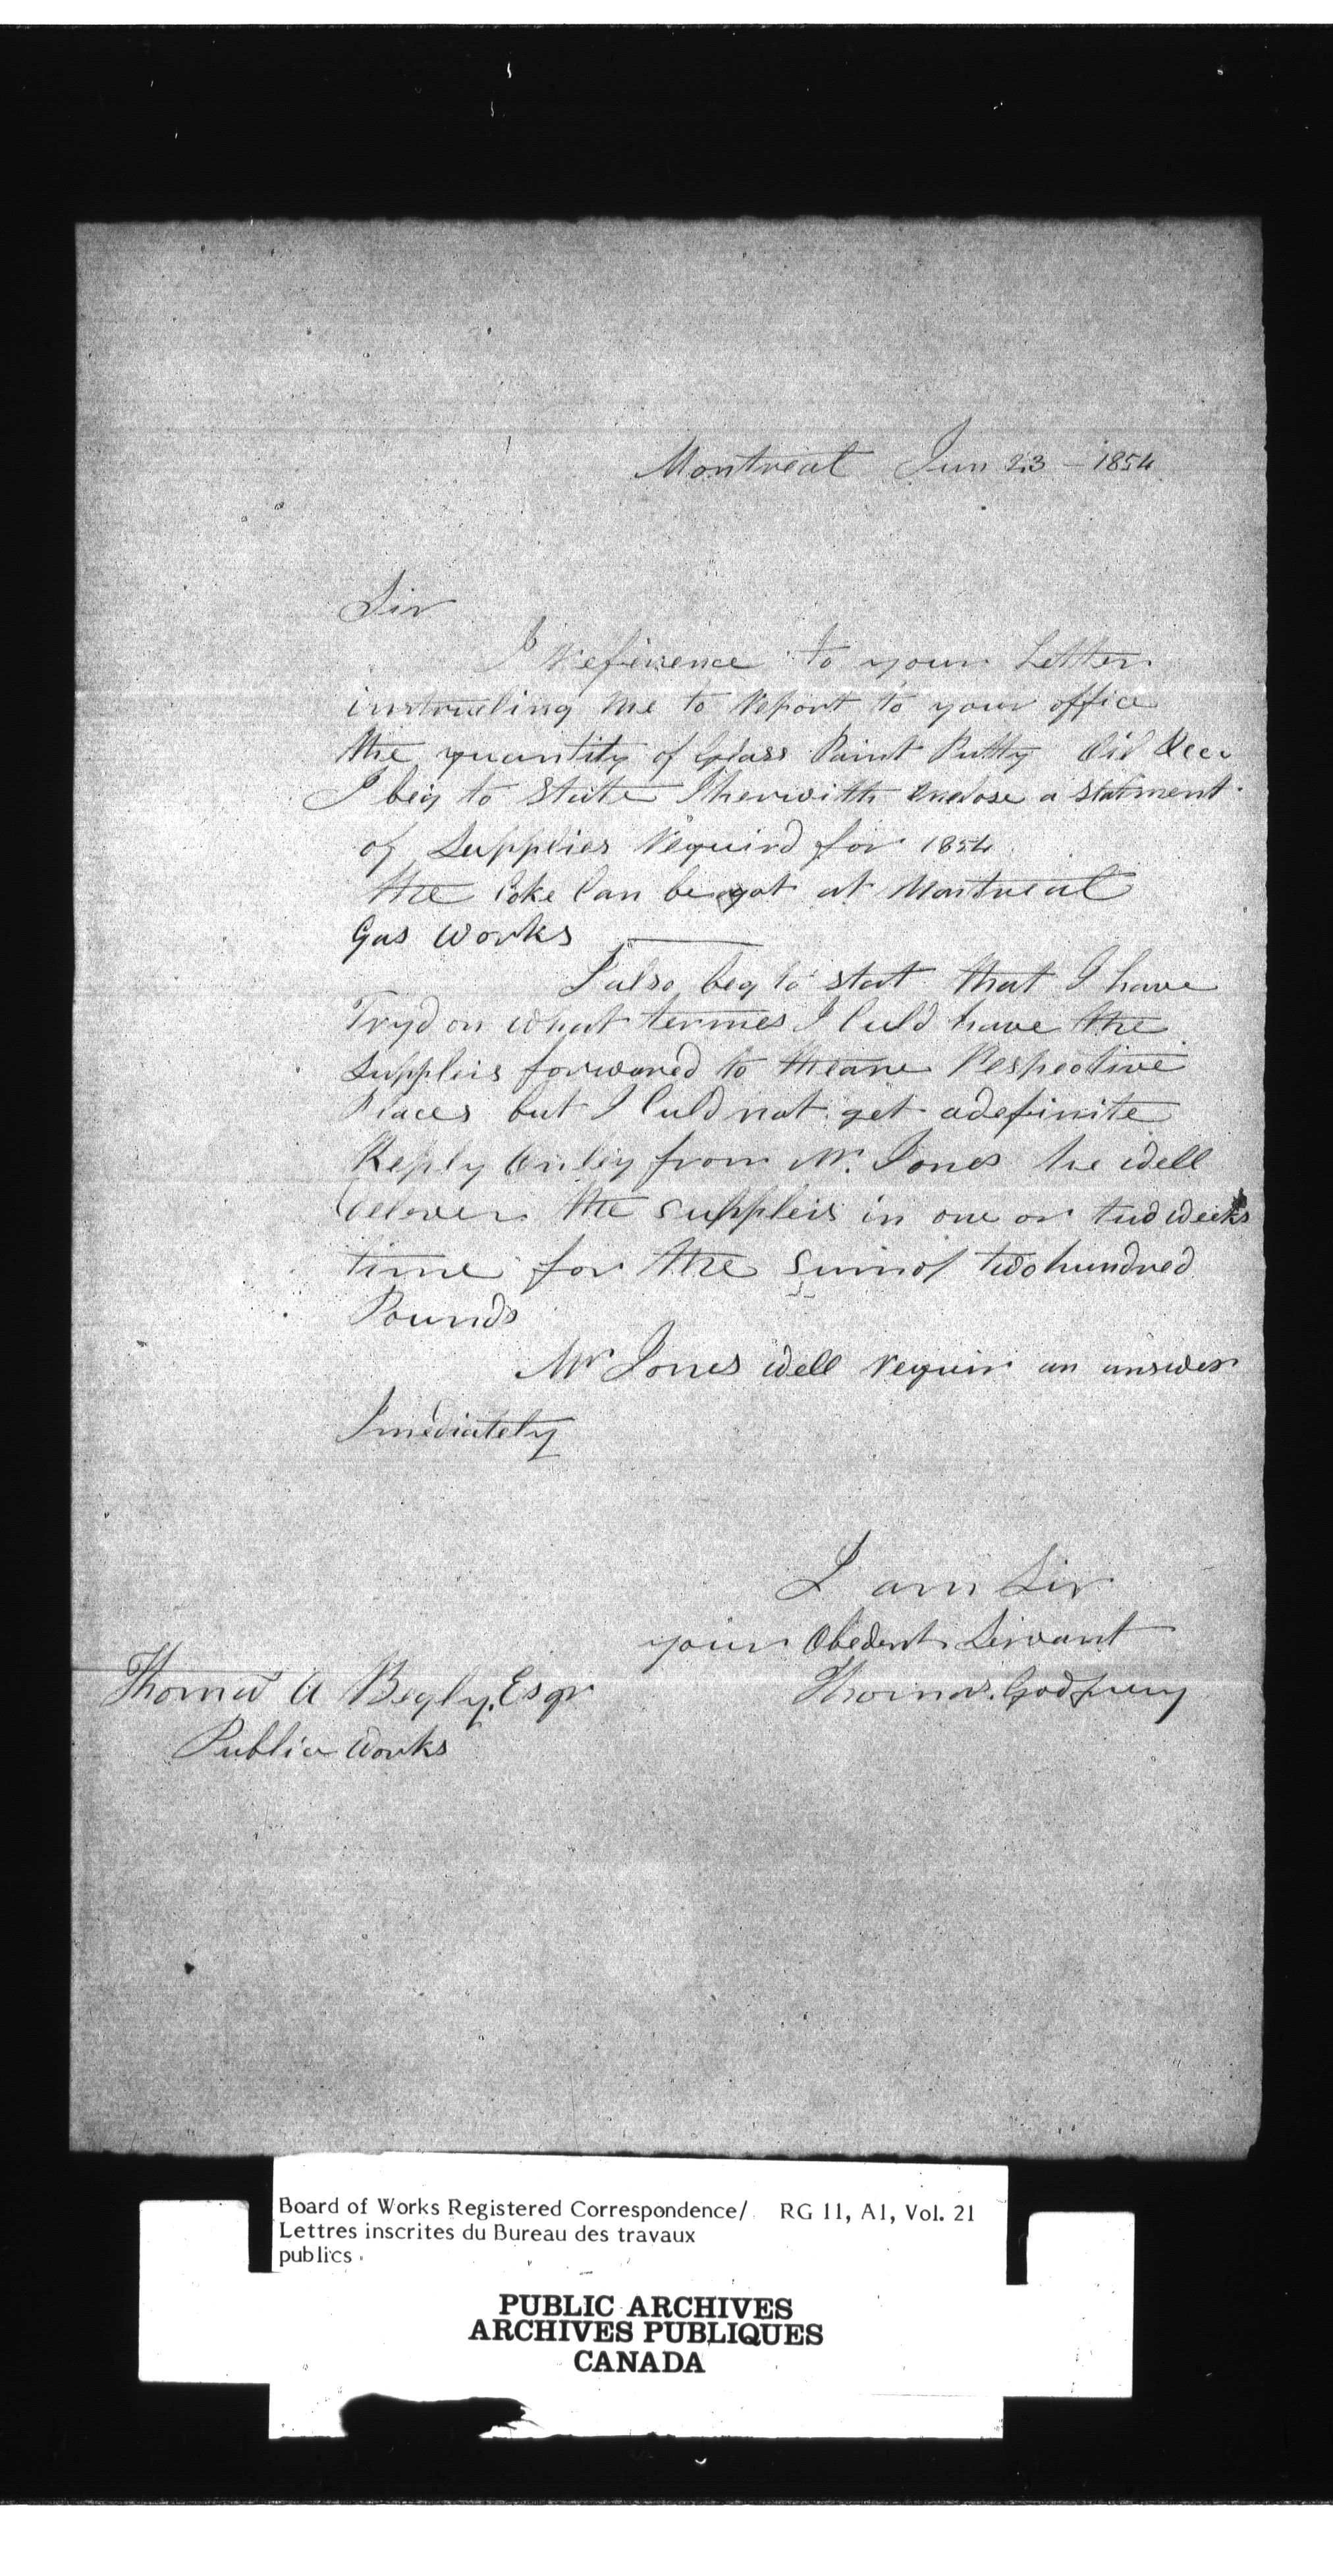 Montreal Jun 23 - 1854
Sir
I reference to your Letter
instructing me to Report to your office
the quantity of Glass Paint Putty Oil &cc
I beg to State I herwith enclose a statment
of Supplies Requird for 1854
the Coke Can be got at Montreal
Gas Works
I also beg to stat that I have
Tryd on what termes I Culd have the
Suppleis forwared to theare Respective
Places but I Culd not get a definite
Reply Onley from Mr. Jones he well
Delever the suppleis in one or two weeks
time for the Sum of two hundred
Pounds
Mr Jones well requir an answer
Imediately
I am Sir
your Obedent Servant
Thomas Godfrey
Thomas A Begly, Esqr
Public Works
Board of Works Registered Correspondence/ RG 11, A1, Vol. 21
Lettres inscrites du Bureau des travaux
publics
PUBLIC ARCHIVES
ARCHIVES PUBLIQUES
CANADA